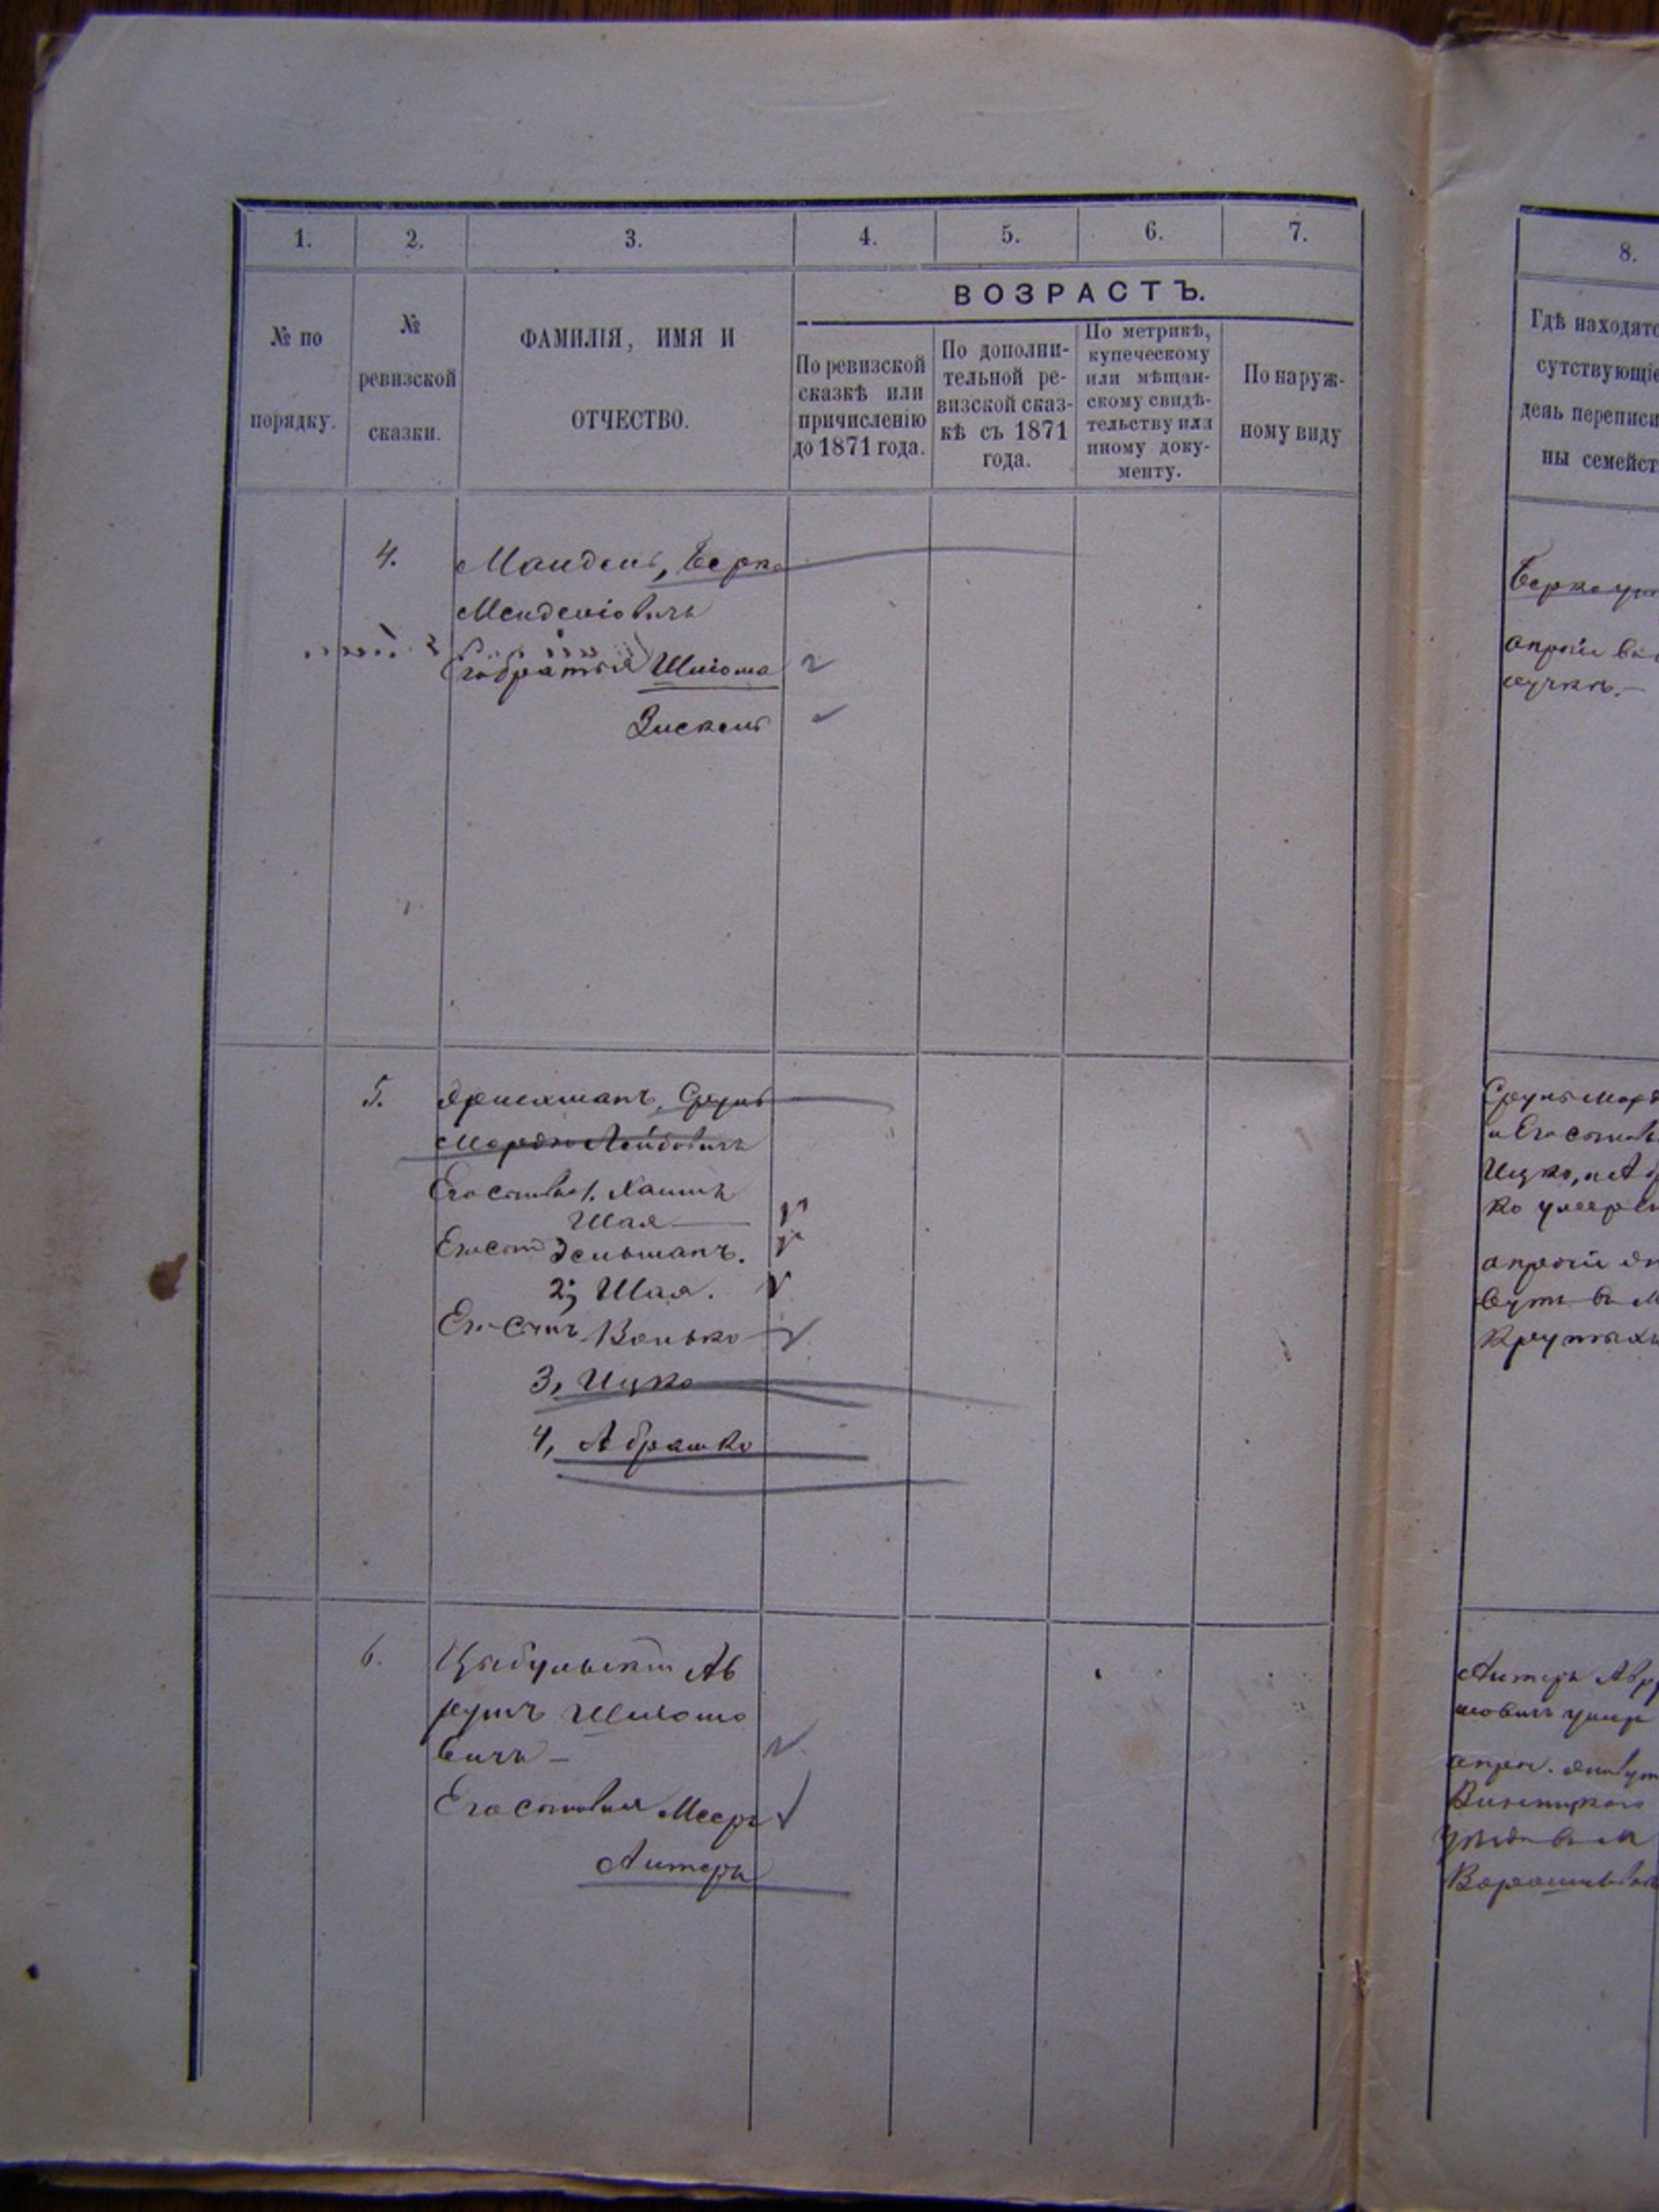 1.
2.
3.
4.
5.
6.
7.
8.
№ по
порядку.
№
ревизской
сказки.
ФАМИЛІЯ, ИМЯ И
ОТЧЕСТВО.
ВОЗРАСТЪ.
По ревизской
сказкѣ или
причисленію
до 1871 года.
По дополни-
тельной ре-
визской сказ-
кѣ съ 1871
года.
По метрикѣ,
купеческому
или мѣщан-
скому свидѣ-
тельству или
иному доку-
менту.
По наруж-
ному виду
Гдѣ находятс
сутствующіе
день переписи
ны семейст
4.
Мандель, Берко
Менделіовичъ
Его братья Шліома
Зискель
Берко
лучкѣ.
5.
Сруль
Мордко Лейбовичъ
Его сыновья 1. Хаимъ
Шая
Его сын Зельманъ.
2; Шая.
Его Сынъ Волько
3, Ицко
4, Абрашко
Сруль Морд
и Его сыновь
Ицко, и Аб
ко умерли
6.
Цыбульскій Ав
румъ Шліомо
вичъ
Его сыновья Меер
Литеръ
Авру
мовичъ умер
Винницкаго